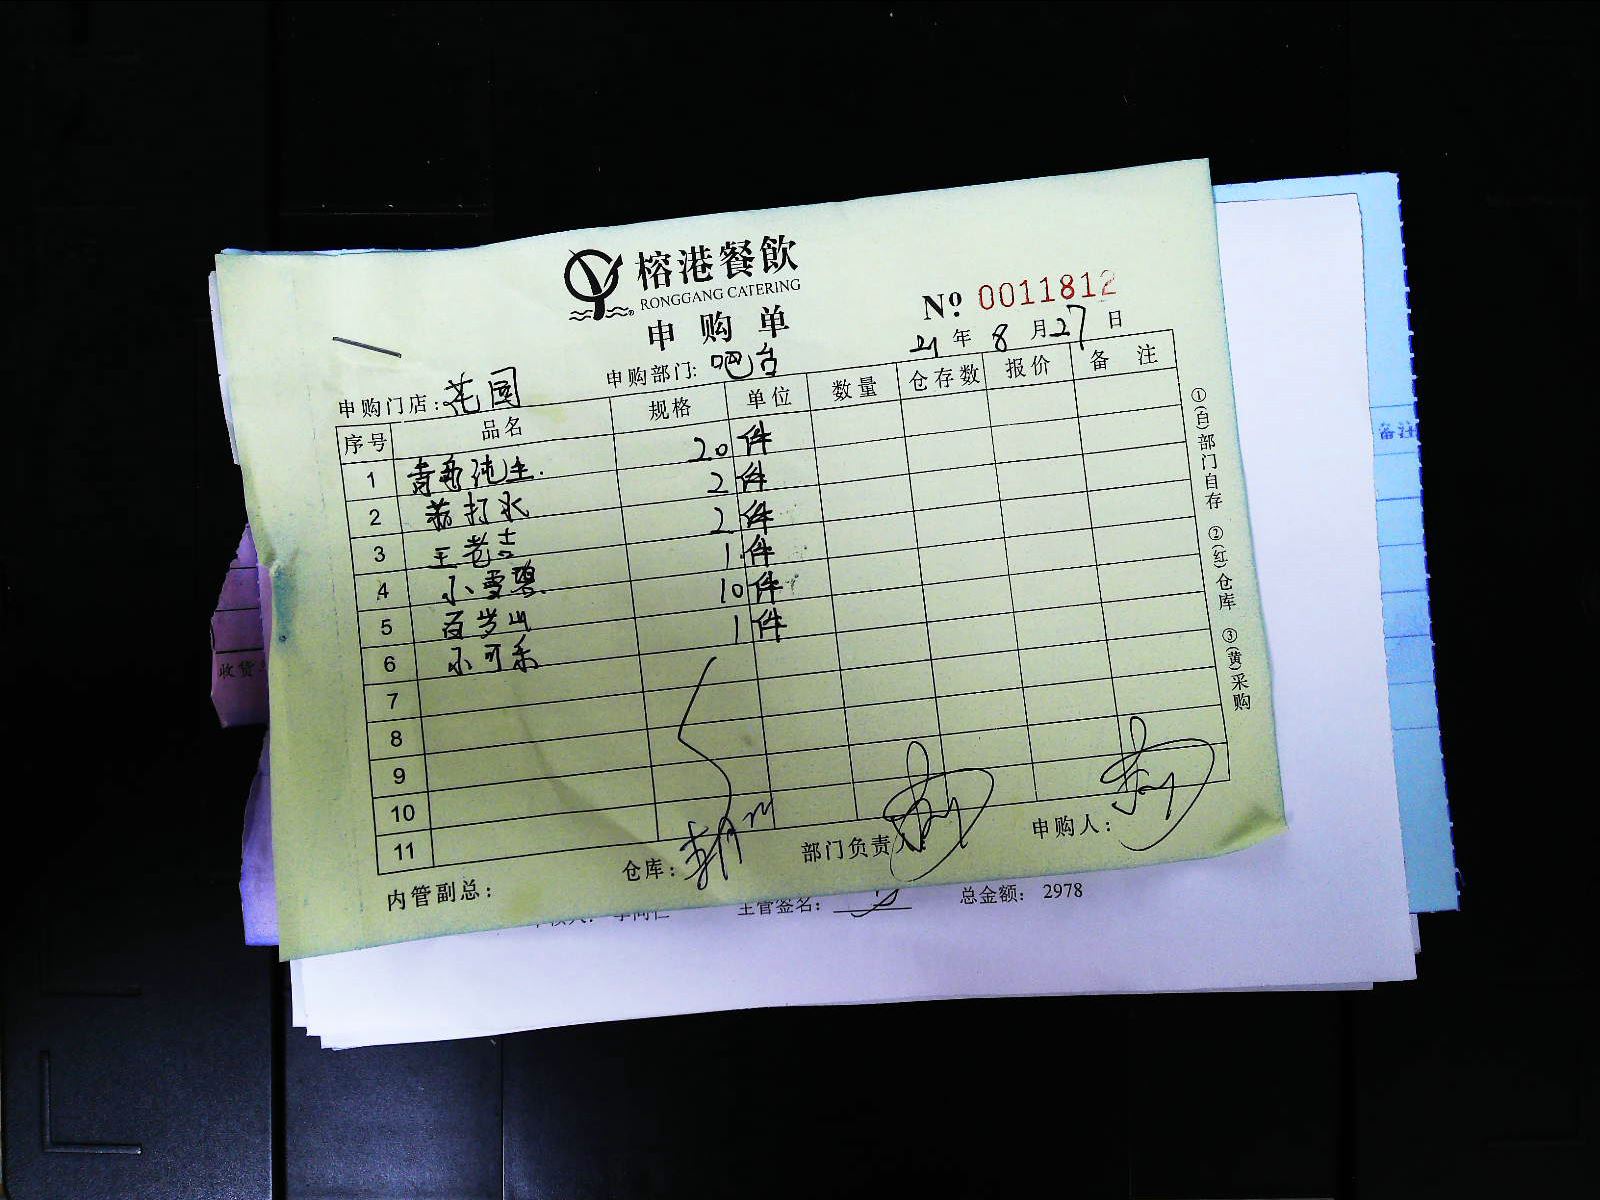 榕港餐飲
RONGGANG CATERING
申购单
№ 0011812
21年8月27日
申购门店:花园 申购部门:吧台
序号 品名 规格 单位 数量 仓存数 报价 备注
1 青岛纯生 20 件
2 苏打水 2 件
3 王老吉 2 件
4 小雪碧 1 件
5 百岁山 10 件
6 小可乐 1 件
7
8
9
10
11
内管副总: 仓库: 部门负责人: 申购人:
①(白)部门自存 ②(红)仓库 ③(黄)采购
备注
收货
主管签名: 总金额: 2978